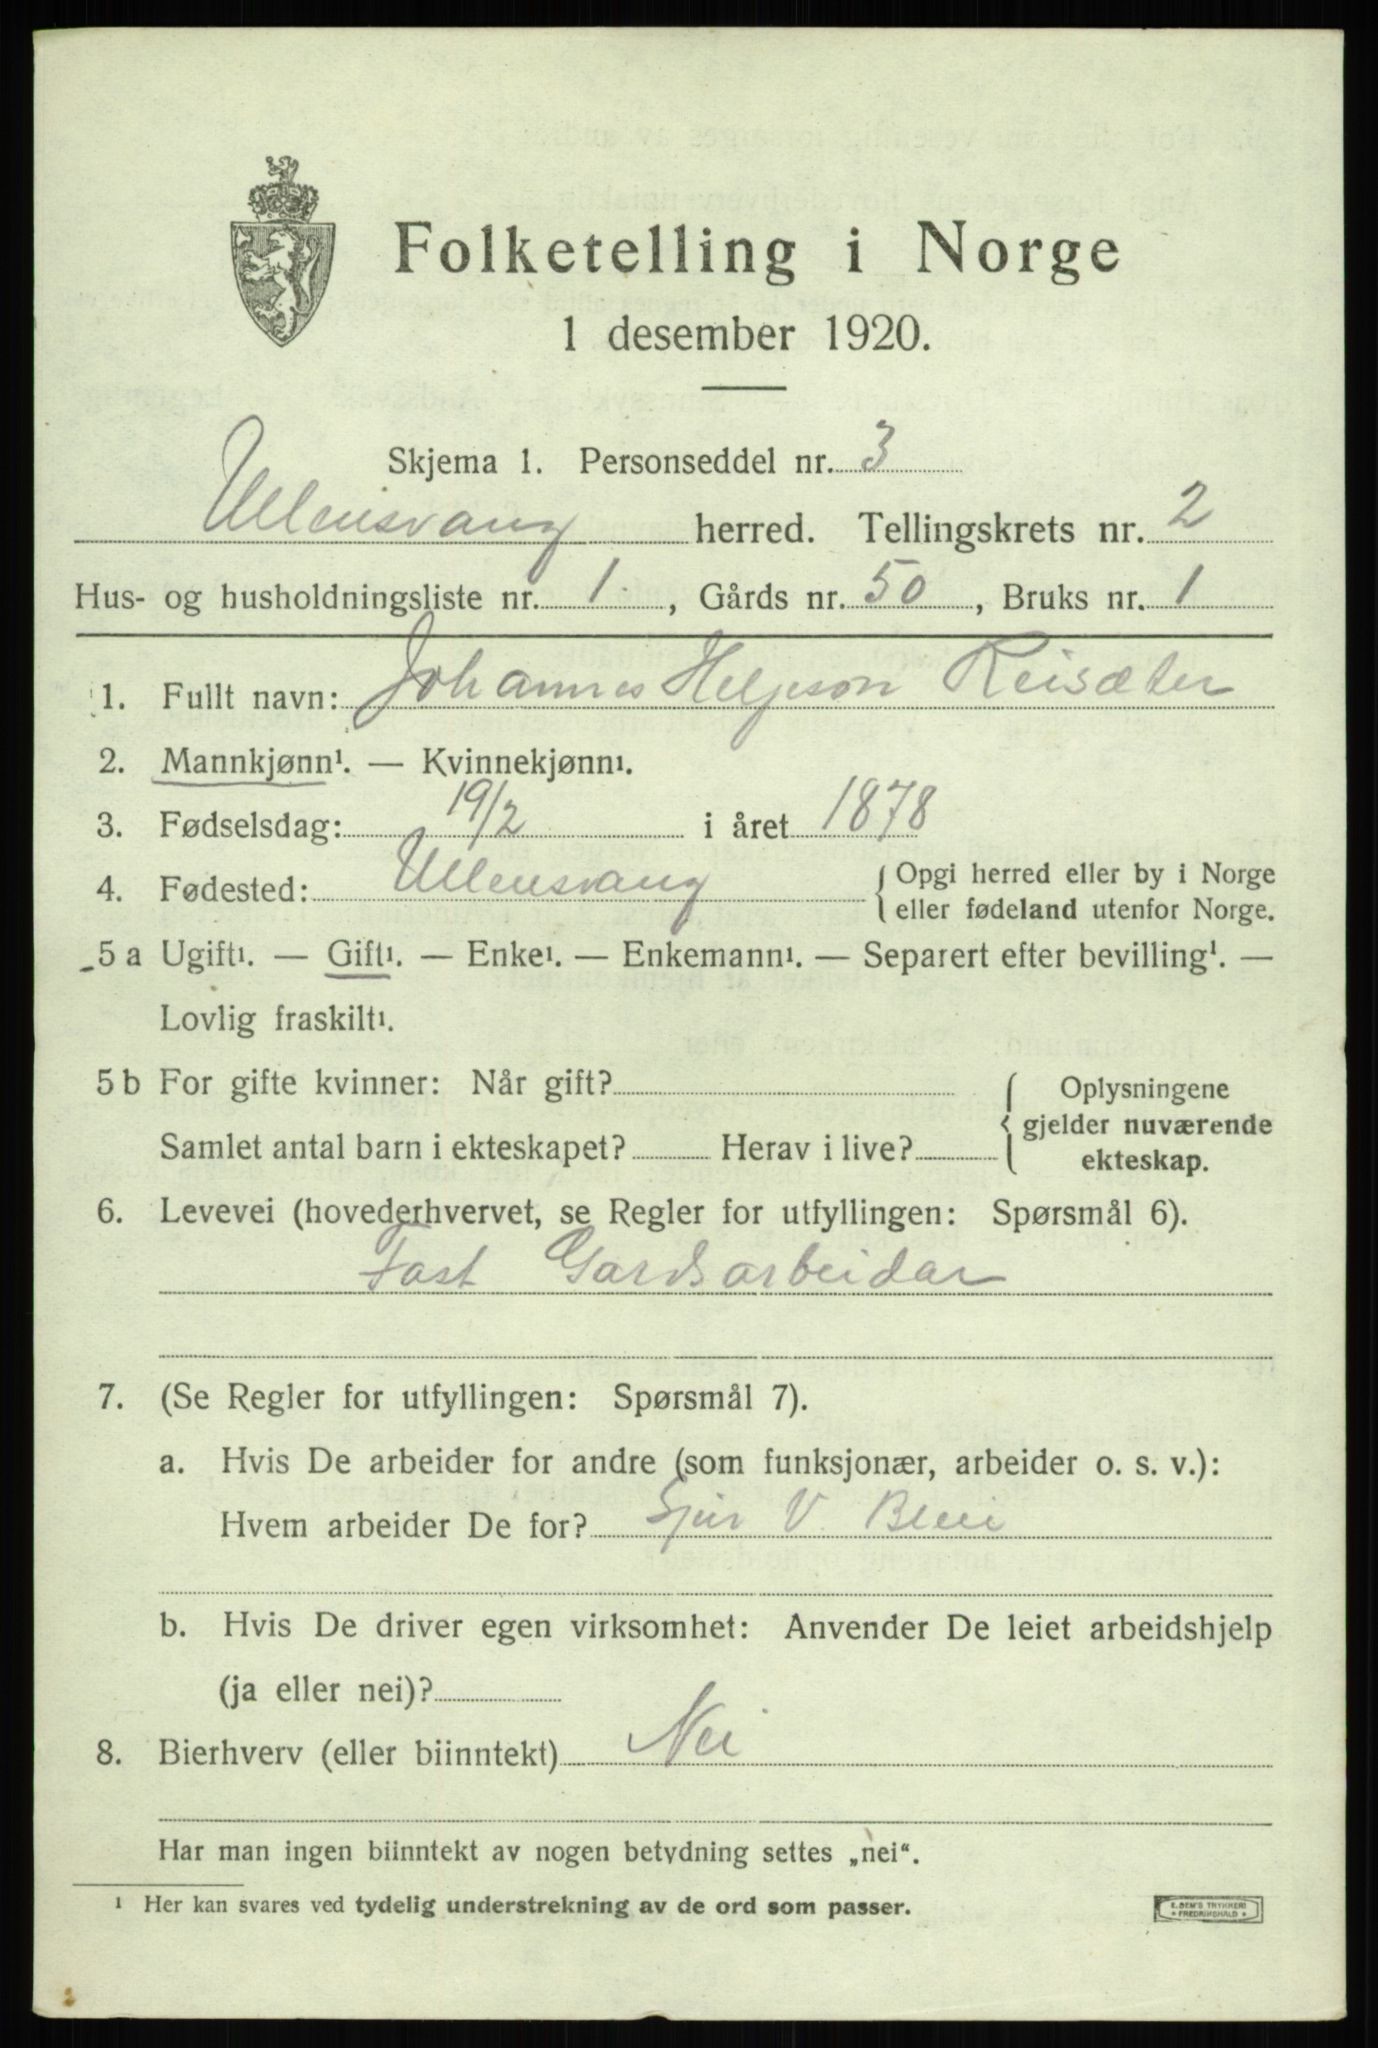 Folketelling i Norge
1 desember 1920.
Skjema 1. Personseddel nr. 3
Ullensvang herred. Tellingskrets nr. 2
Hus- og husholdningsliste nr. 1, Gårds nr. 50, Bruks nr. 1
1. Fullt navn: Johannes Helgeson Reisæter
2. Mannkjønn¹. — Kvinnekjønn¹.
3. Fødselsdag: 19/2 i året 1878
4. Fødested: Ullensvang { Opgi herred eller by i Norge
eller fødeland utenfor Norge.
5 a Ugift¹. — Gift¹. — Enke¹. — Enkemann¹. — Separert efter bevilling¹. —
Lovlig fraskilt¹.
5 b For gifte kvinner: Når gift? { Oplysningene
gjelder nuværende
Samlet antal barn i ekteskapet? Herav i live? ekteskap.
6. Levevei (hovederhvervet, se Regler for utfyllingen: Spørsmål 6).
Fast Gardsarbeidar
7. (Se Regler for utfyllingen: Spørsmål 7).
a. Hvis De arbeider for andre (som funksjonær, arbeider o. s. v.):
Hvem arbeider De for? Sjur V. Bleie
b. Hvis De driver egen virksomhet: Anvender De leiet arbeidshjelp
(ja eller nei)?
8. Bierhverv (eller biinntekt) Nei
Har man ingen biinntekt av nogen betydning settes „nei“.
¹ Her kan svares ved tydelig understrekning av de ord som passer.
E. SEM'S TRYKKERI
FREDRIKSHALD